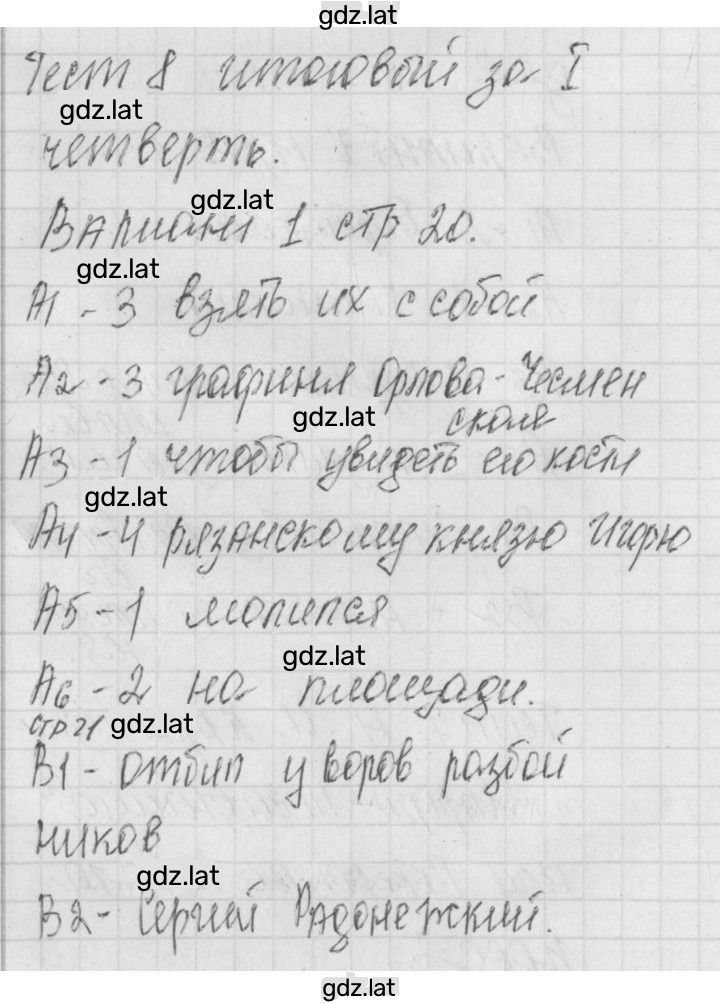 gdz.lat
Тест 8 итоговый за I
gdz.lat
четверть.
gdz.lat
Вариант 1 стр 20.
gdz.lat
А1 - 3 взять их с собой
А2 - 3 графиня Орлова - Чесмен
gdz.lat
ская
А3 - 1 чтобы увидеть его кости
gdz.lat
А4 - 4 рязанскому князю Игорю
А5 - 1 молился
gdz.lat
А6 - 2 на площади.
стр 21 gdz.lat
В1 - отбил у воров разбой
ников
gdz.lat
В2 - Сергий Радонежский.
gdz.lat